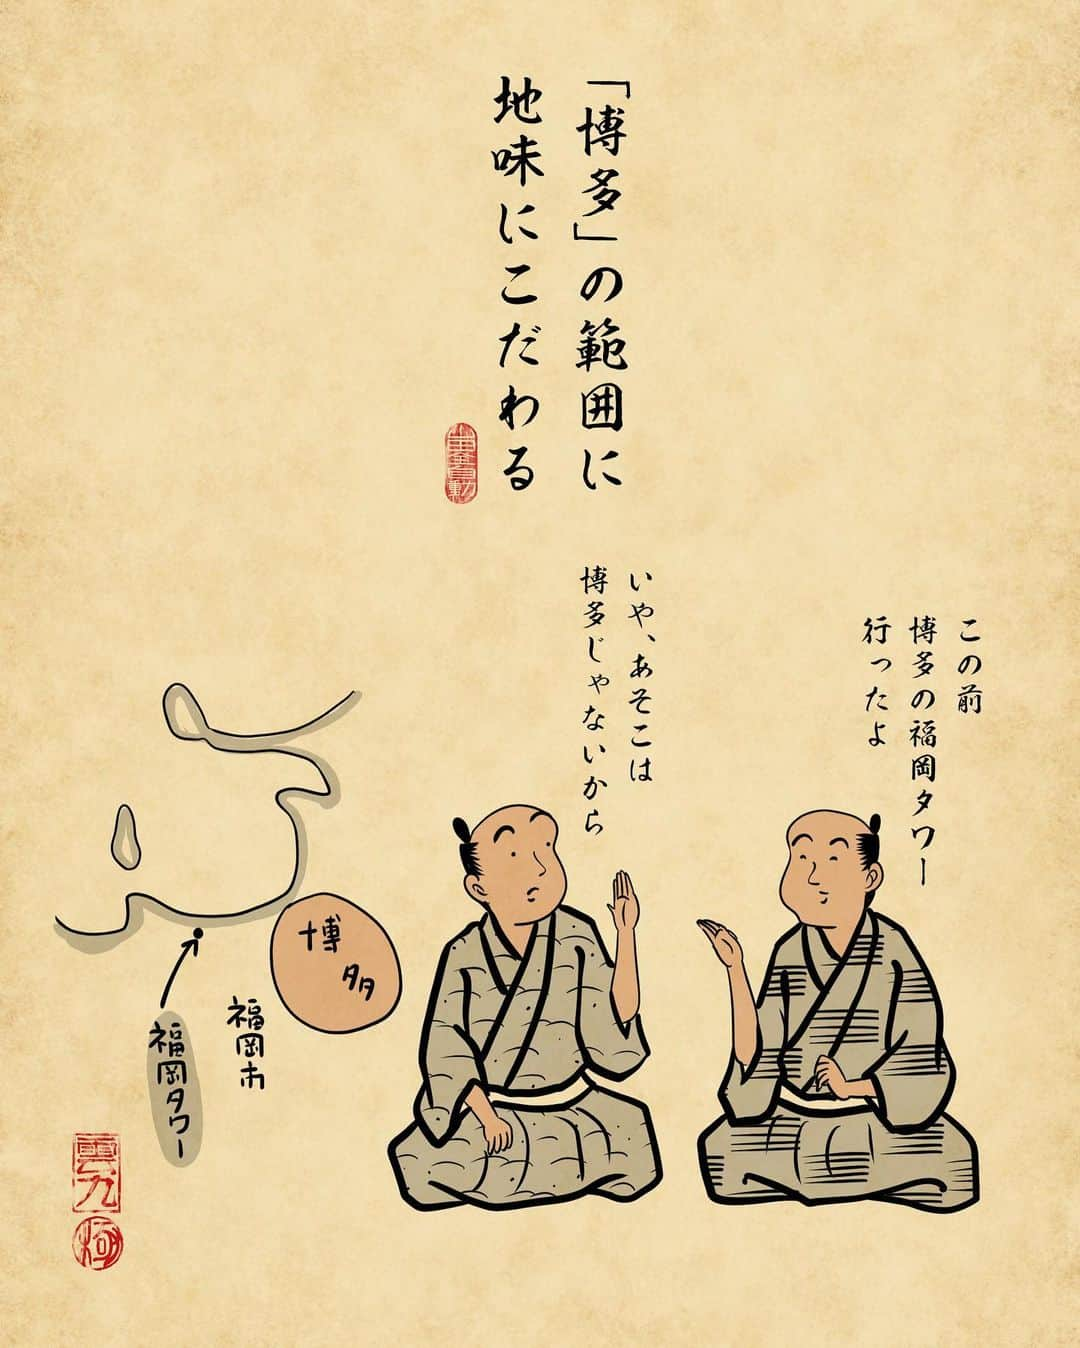 「博多」の範囲に
地味にこだわる
この前
博多の福岡タワー
行ったよ
いや、あそこは
博多じゃないから
博多
福岡市
福岡タワー